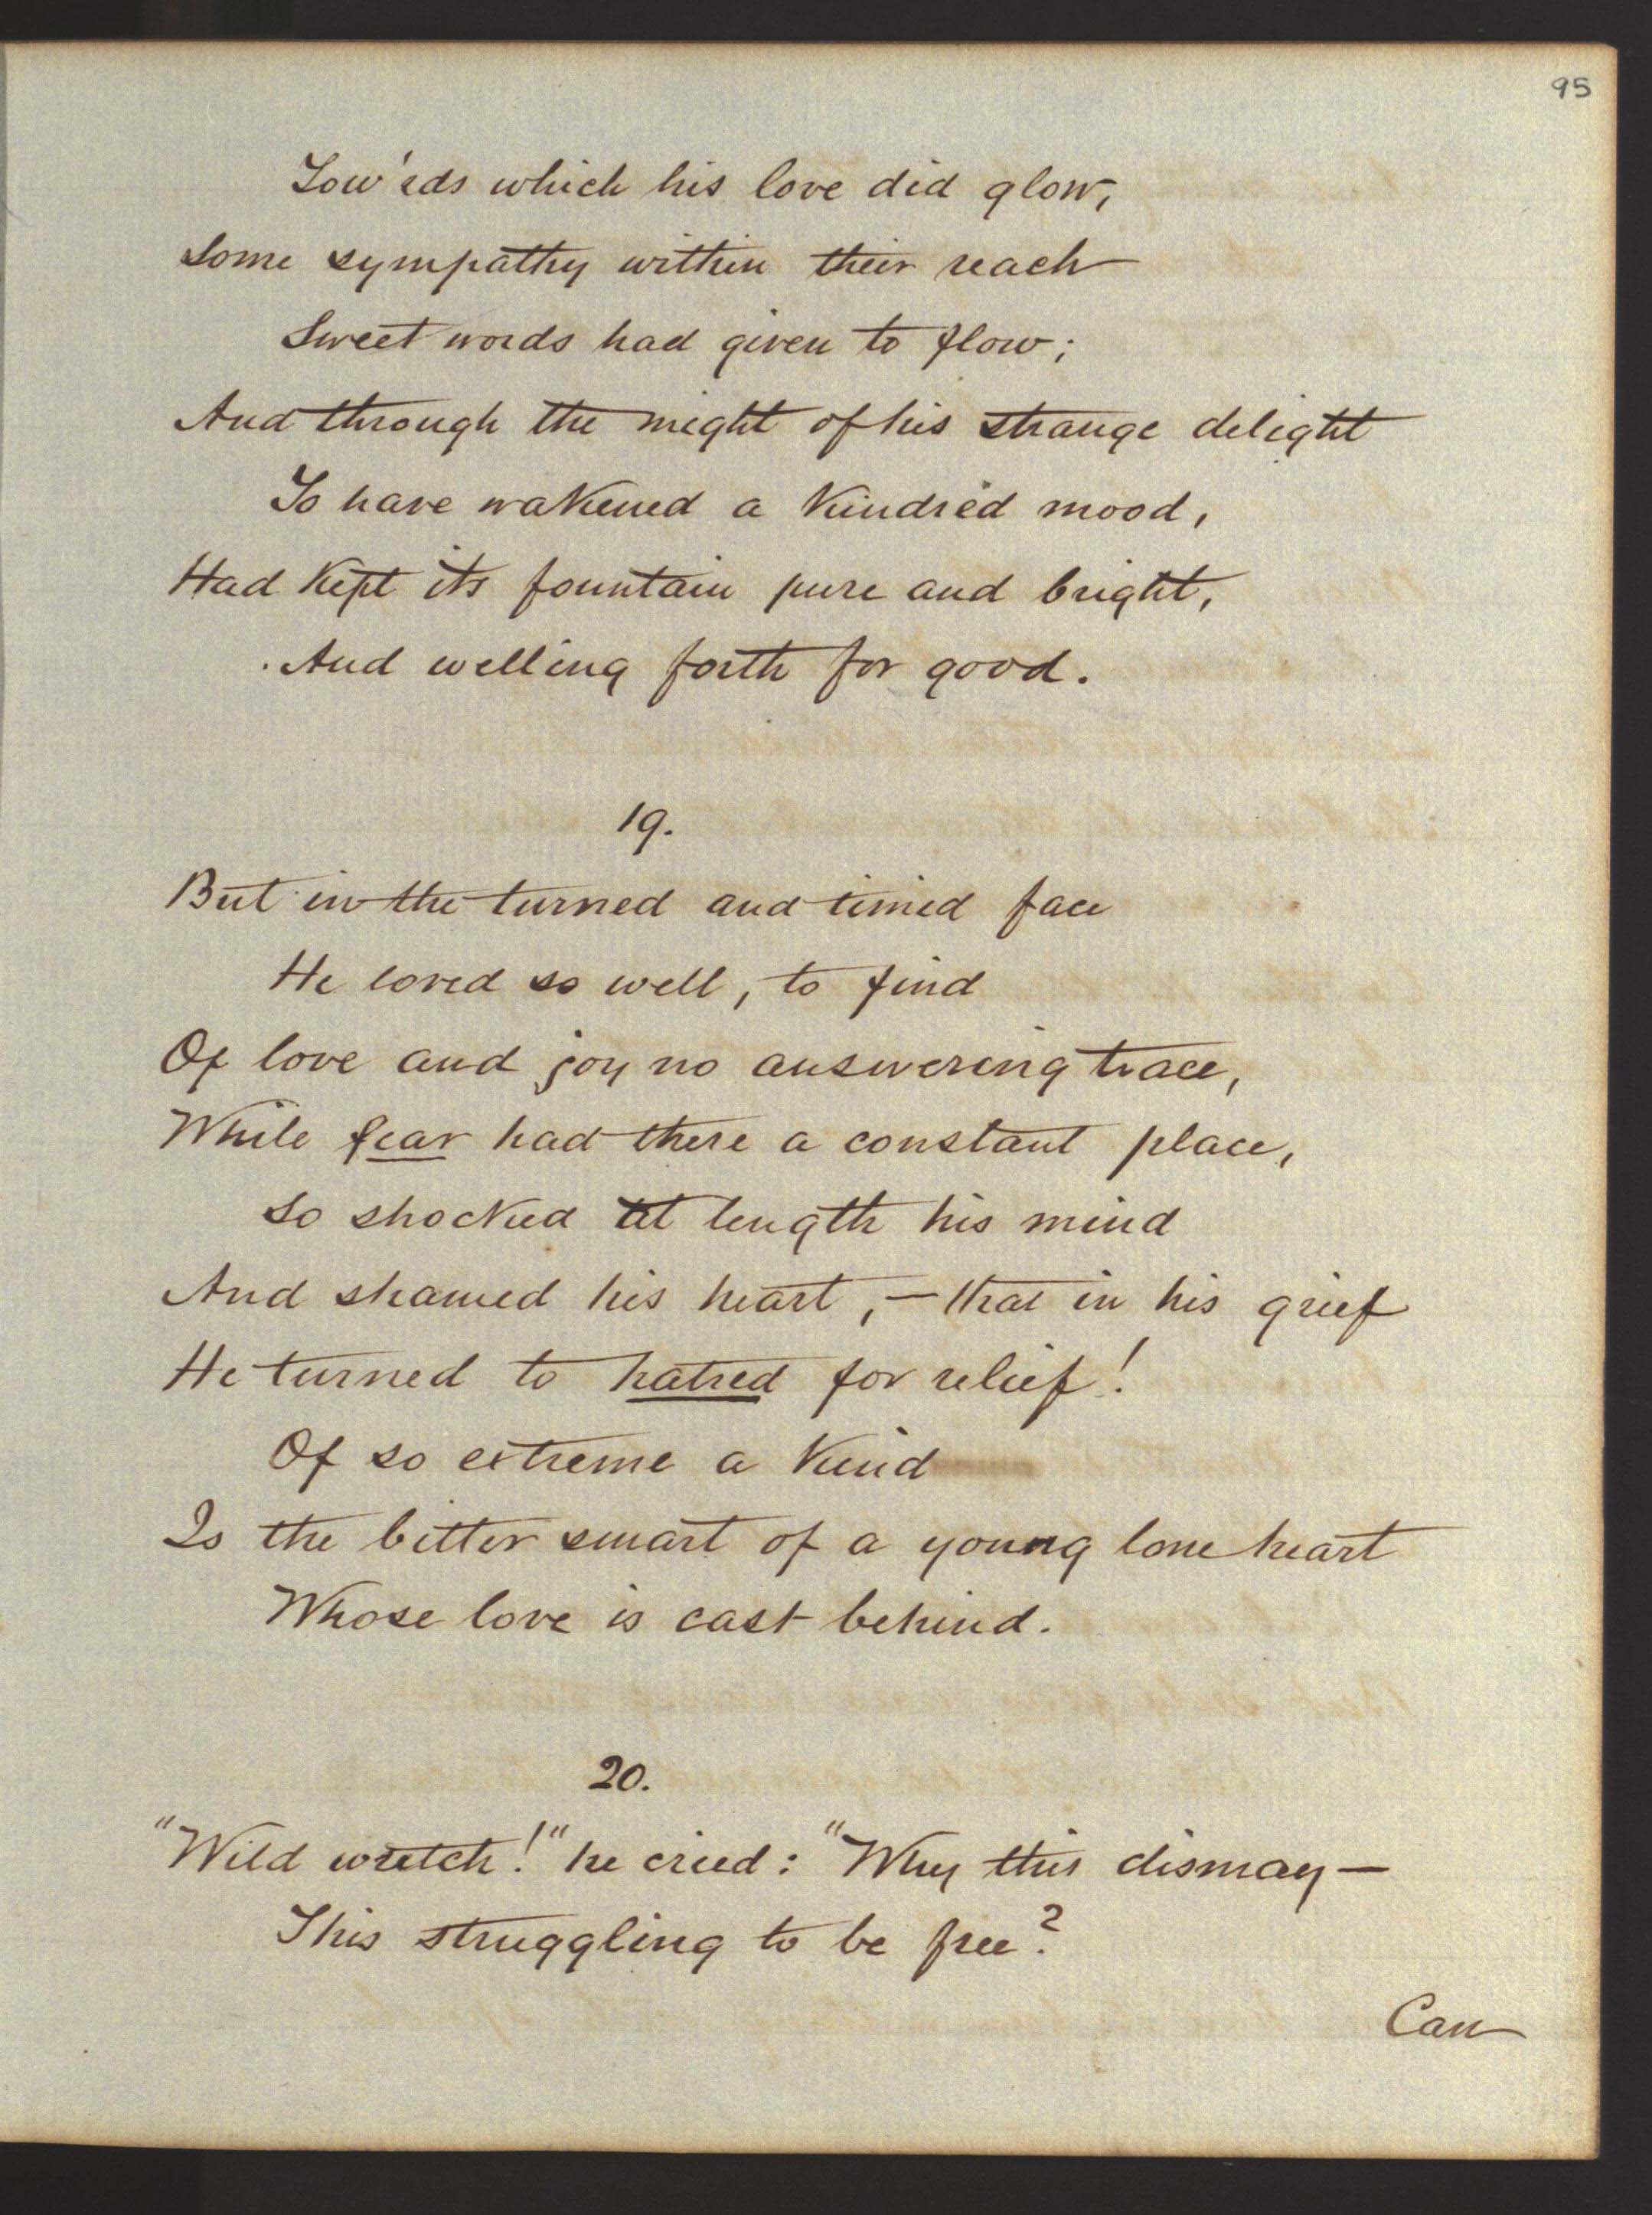 95
Tow'rds which his love did glow,
Some sympathy within their reach
Sweet words had given to flow;
And through the might of his strange delight
To have wakened a kindred mood,
Had kept its fountain pure and bright,
And welling forth for good.
19.
But in the turned and timid face
He loved so well, to find
Of love and joy no answering trace,
While fear had there a constant place,
So shocked at length his mind
And shamed his heart, — that in his grief
He turned to hatred for relief!
Of so extreme a kind
Is the bitter smart of a young lone heart
Whose love is cast behind.
20.
"Wild wretch!" he cried: "Why this dismay —
This struggling to be free?
Can